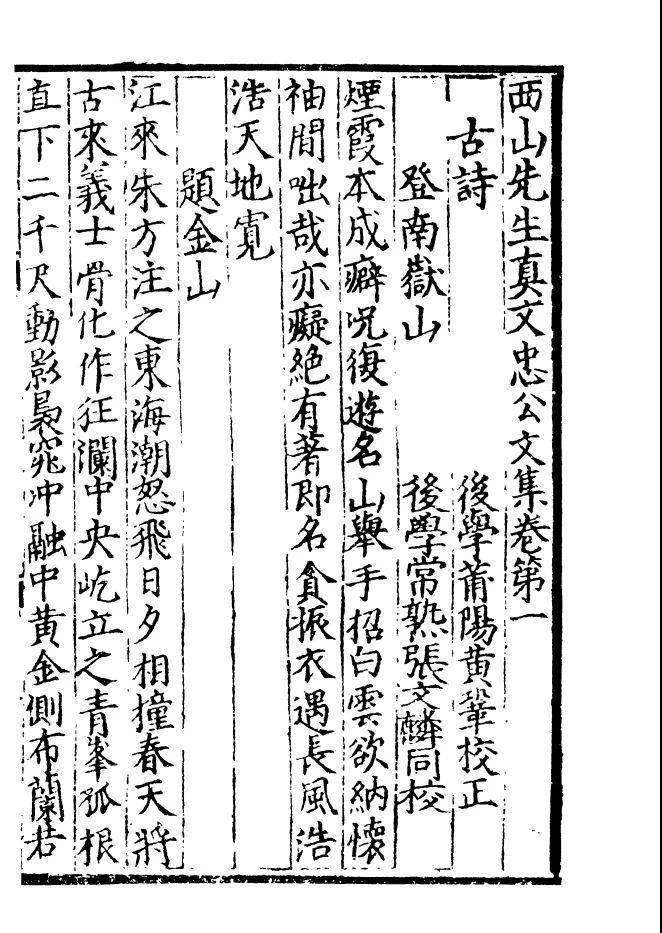 西山先生真文忠公文集卷第一
古詩 後學莆陽黃鞏校正
登南嶽山 後學常熟張文麟同校
煙霞本成癖況復遊名山舉手招白雲欲納懷
袖間咄哉亦癡絕有著即名貪振衣遇長風浩
浩天地寬
題金山
江來朱方注之東海潮怒飛日夕相撞舂天將
古來義士骨化作狂瀾中央屹立之青峯孤根
直下二千尺動影裊窕冲融中黃金側布蘭若